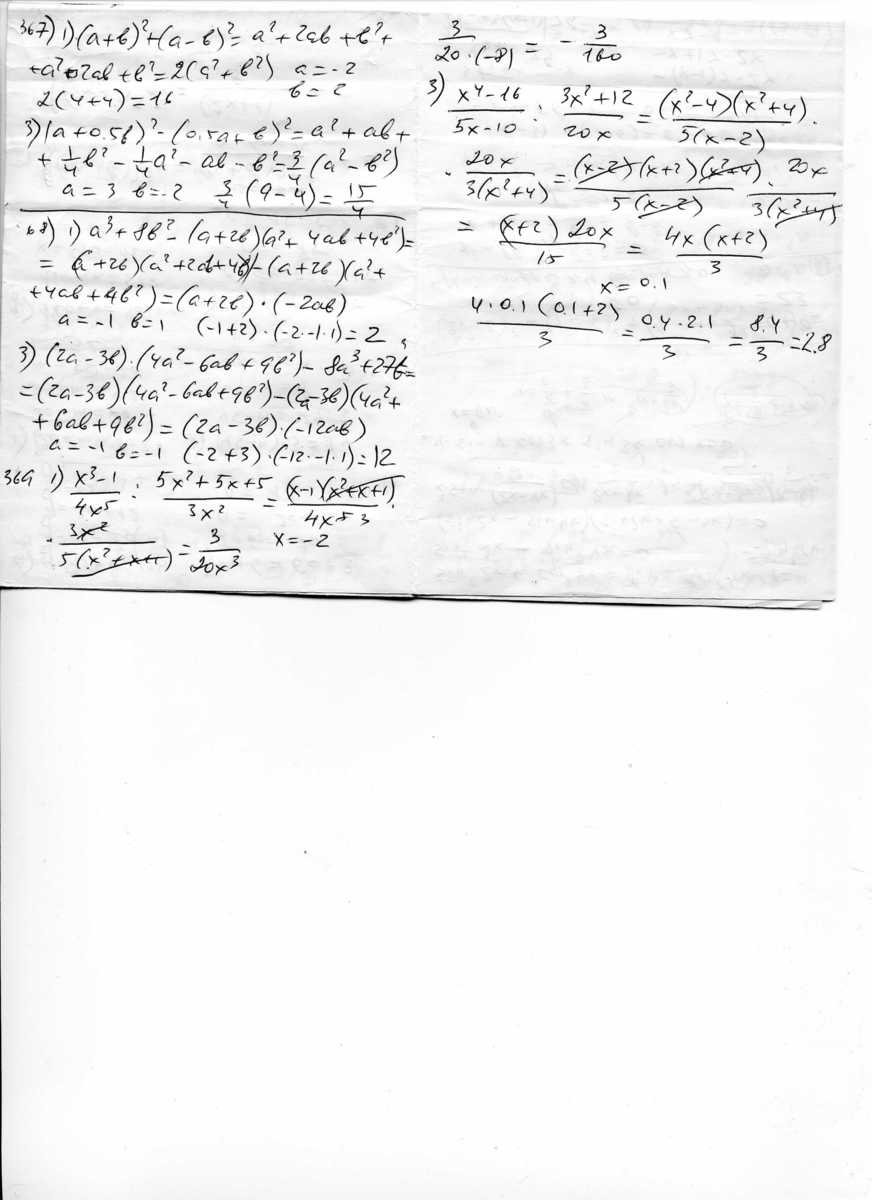 367) 1) (a+b)²+(a-b)²= a²+2ab+b²+
+a²-2ab+b²=2(a²+b²) a=-2
b=2
2(4+4)=16
3)(a+0.5b)²-(0.5a+b)²=a²+ab+
+1/4b²-1/4a²-ab-b²=3/4(a²-b²)
a=3 b=-2 3/4(9-4)=15/4
68) 1) a³+8b²-(a+2b)(a²+4ab+4b²)=
=(a+2b)(a²+2ab+4b)-(a+2b)(a²+
+4ab+4b²)=(a+2b)·(-2ab)
a=-1 b=1 (-1+2)·(-2·-1·1)=2
3) (2a-3b)·(4a²-6ab+9b²)-8a³+27b=
=(2a-3b)(4a²-6ab+9b²)-(2a-3b)(4a²+
+6ab+9b²)=(2a-3b)·(-12ab)
a=-1 b=-1 (-2+3)·(-12·-1·1)=12
369 1) x³-1/4x⁵ : 5x²+5x+5/3x² = (x-1)(x²+x+1)/4x⁵ 3 ·
· 3x²/5(x²+x+1) = 3/20x³ x=-2
3/20·(-8) = -3/160
3) x⁴-16/5x-10 : 3x²+12/20x = (x²-4)(x²+4)/5(x-2) ·
· 20x/3(x²+4) = (x-2)(x+2)(x²+4)/5(x-2) · 20x/3(x²+4)
= (x+2) 20x/15 = 4x(x+2)/3
x=0.1
4·0.1(0.1+2)/3 = 0.4·2.1/3 = 8.4/3 =2.8